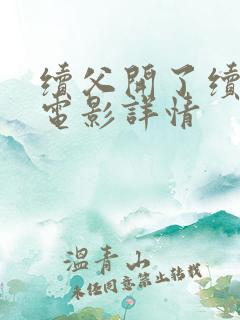 續父開了續
電影詳情
溫青山
未任同意禁止转载